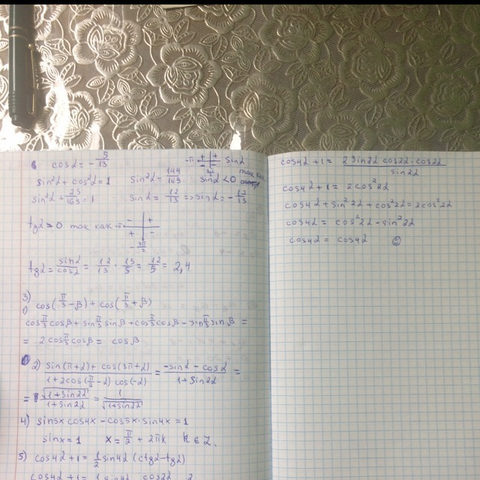 cosα = -5/13
sin²α + cos²α = 1
sin²α + 25/169 = 1
sin²α = 144/169
sinα < 0 так как
sinα = 12/13 => sinα = -12/13
tgα > 0 так как
tgα = sinα/cosα = 12/13 · 13/5 = 12/5 = 2,4
3)
1) cos(π/3 - β) + cos(π/3 + β)
cos π/3 cosβ + sin π/3 sinβ + cos π/3 cosβ - sin π/3 sinβ =
= 2cos π/3 cosβ = cosβ
2) (sin(π+α) + cos(3π+α))/(1 + 2cos(π/2 - α) cos(-α)) = (-sinα - cosα)/(1 + sin2α) =
√(1+sin2α)/(1+sin2α) = 1/√(1+sin2α)
4) sin5x cos4x - cos5x · sin4x = 1
sinx = 1 x = π/2 + 2πk k ∈ Z.
5) cos4α + 1 = 1/2 sin4α (ctgα - tgα)
cos4α + 1 = (2sin2α cos2α · cos2α)/sin2α
cos4α + 1 = 2cos²2α
cos4α + sin²2α + cos²2α = 2cos²2α
cos4α = cos²2α - sin²2α
cos4α = cos4α